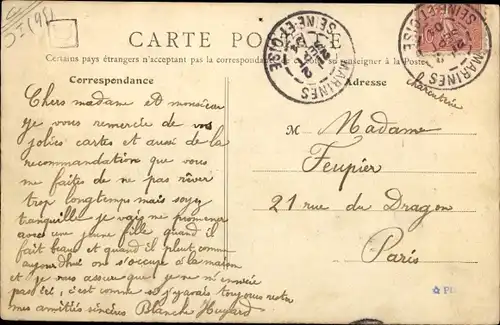 CARTE POSTALE
Certains pays étrangers n'acceptent pas la correspondance de ce côté, se renseigner à la Poste
Correspondance
Adresse
MARINES
SEINE-ET-OISE
MARINES
SEINE-ET-OISE
Chers madame et monsieur
je vous remercie de vos
jolies cartes et aussi de la
recommandation que vous
me faites de ne pas rêver
trop longtemps mais soyez
tranquille je vais me promener
avec une jeune fille quand il
fait beau et quand il pleut comme
aujourd'hui on s'occupe à la maison
et je vous assure que je ne m'ennuie
pas ici, c'est comme si j'y avais toujours restée
mes amitiés sincères Blanche Huyard
M Madame
Feupier
21 rue du Dragon
Paris